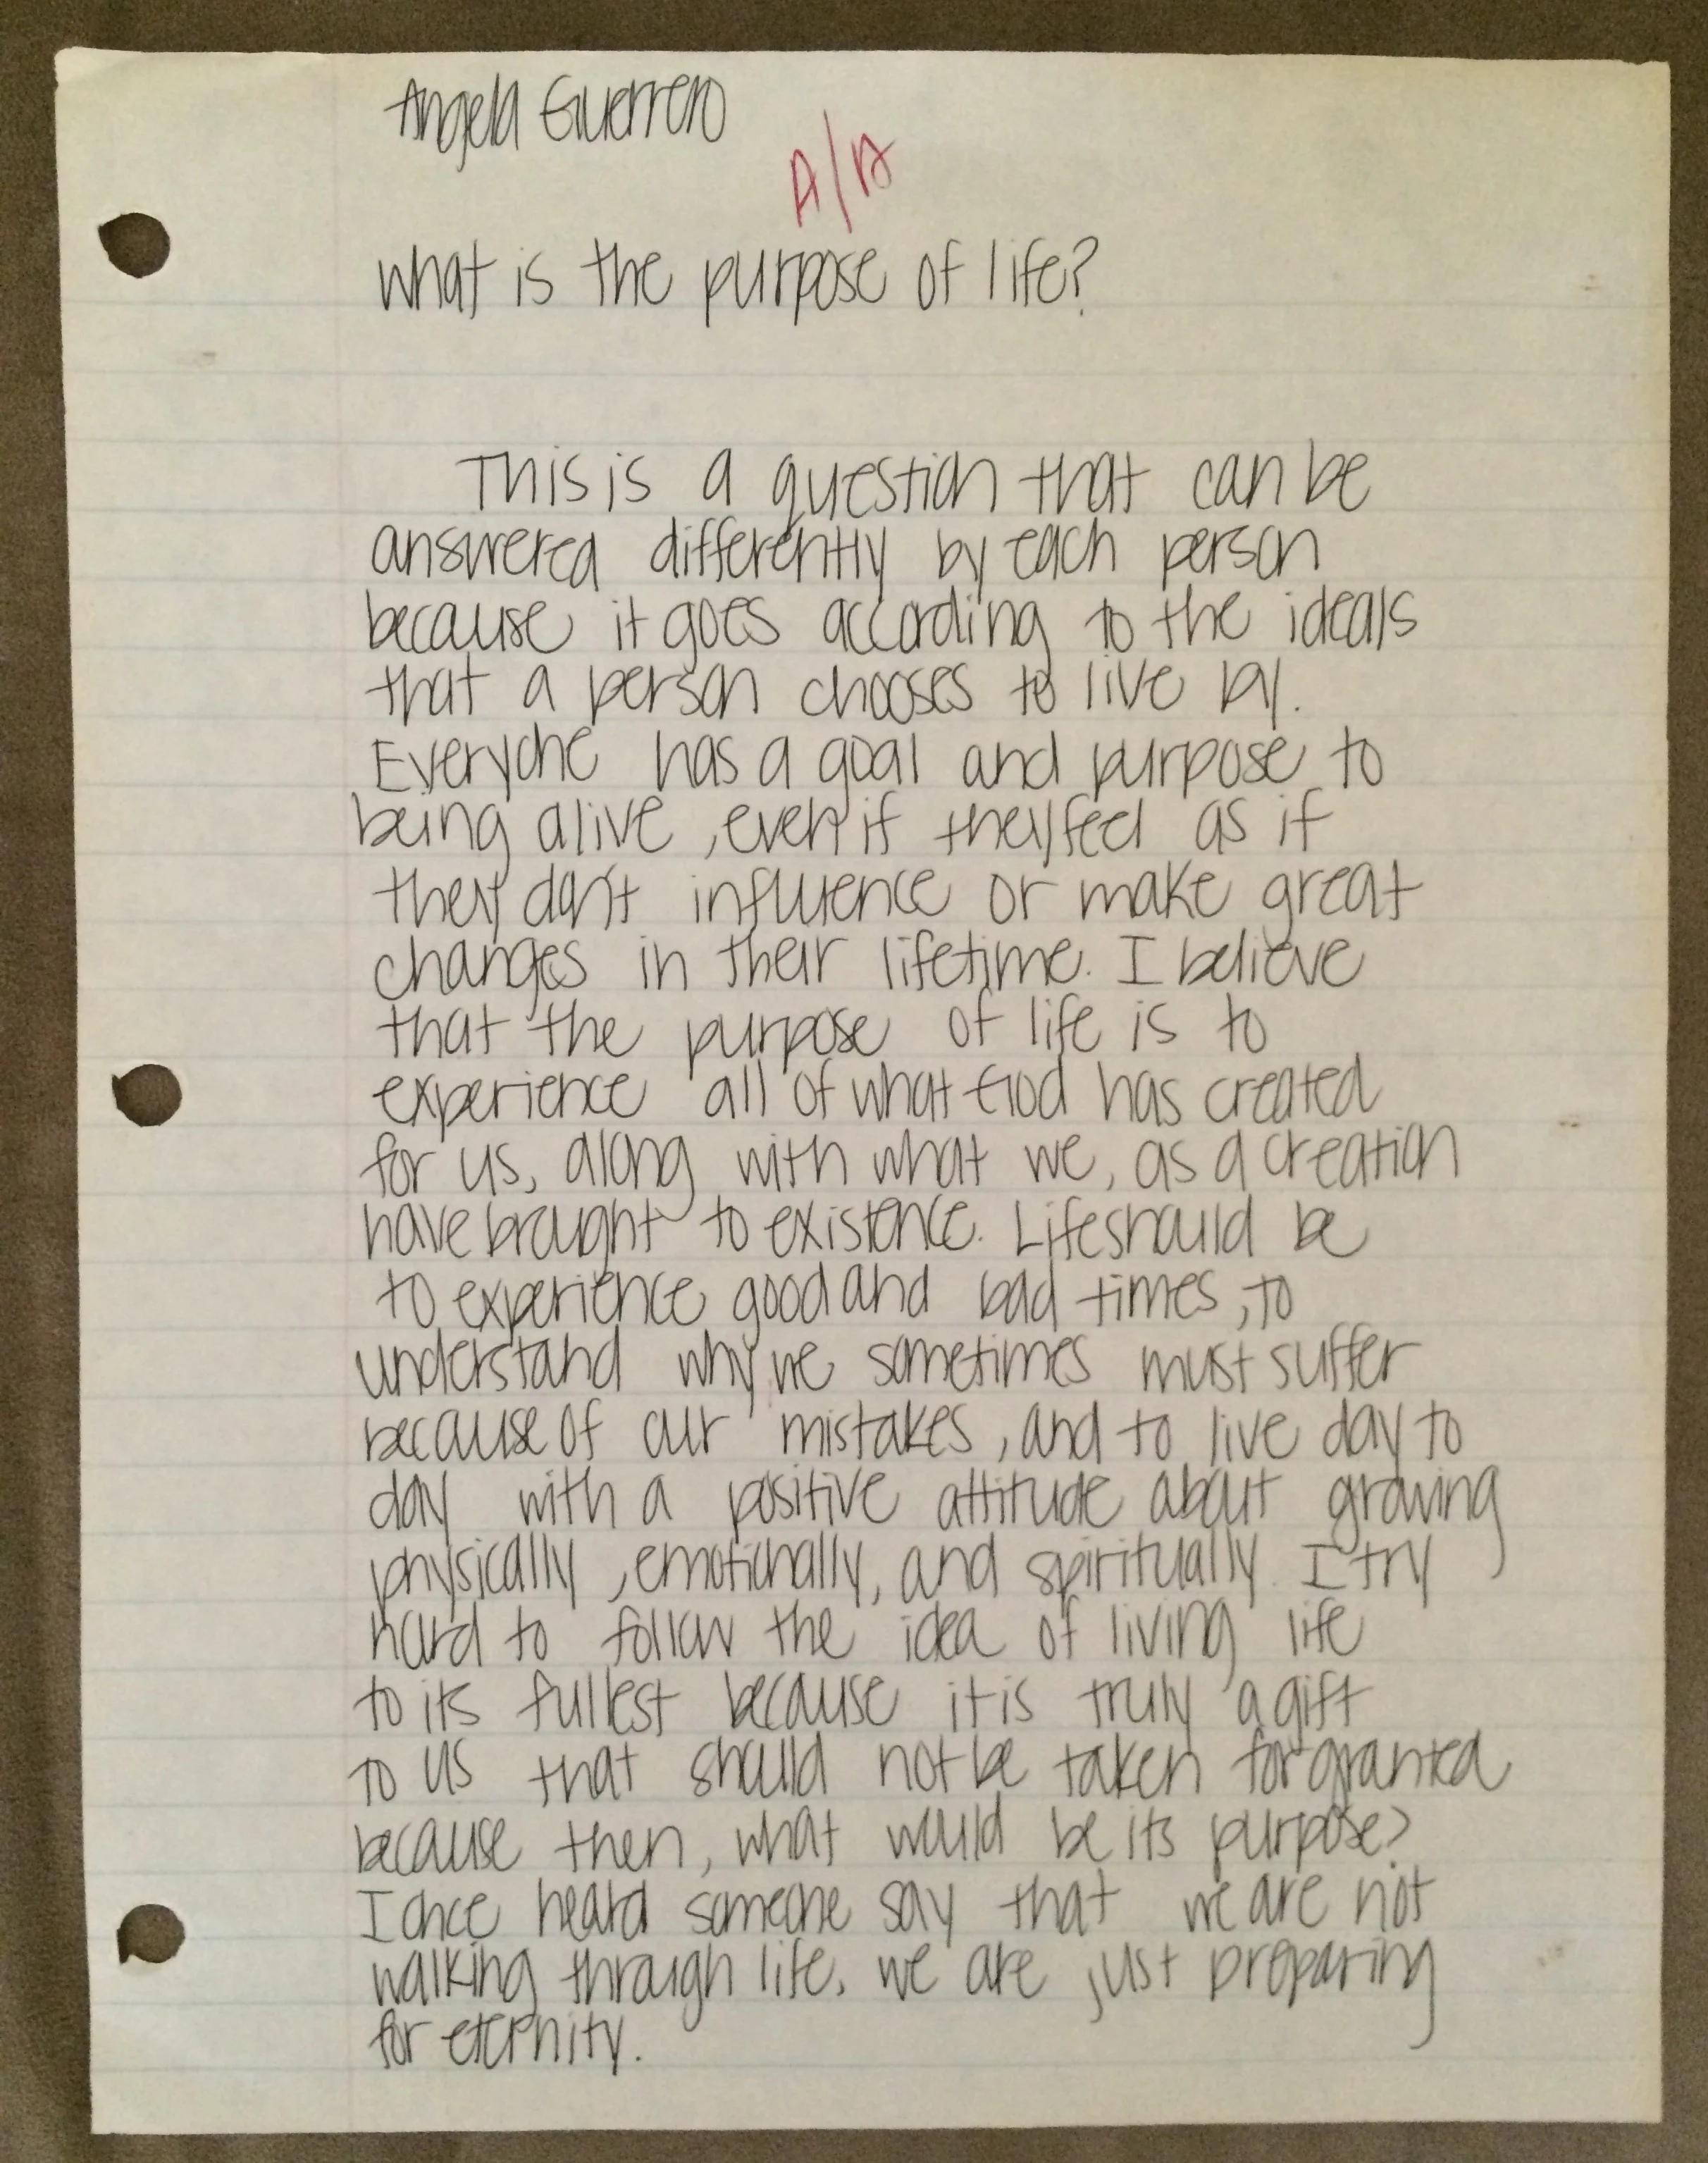 Angela Guerrero
A/A
What is the purpose of life?
This is a question that can be
answered differently by each person
because it goes according to the ideals
that a person chooses to live by.
Everyone has a goal and purpose to
being alive, even if they feel as if
they don't influence or make great
changes in their lifetime. I believe
that the purpose of life is to
experience all of what God has created
for us, along with what we, as a creation
have brought to existence. Life should be
to experience good and bad times, to
understand why we sometimes must suffer
because of our mistakes, and to live day to
day with a positive attitude about growing
physically, emotionally, and spiritually. I try
hard to follow the idea of living life
to its fullest because it is truly a gift
to us that should not be taken for granted
because then, what would be its purpose?
I once heard someone say that we are not
walking through life, we are just preparing
for eternity.